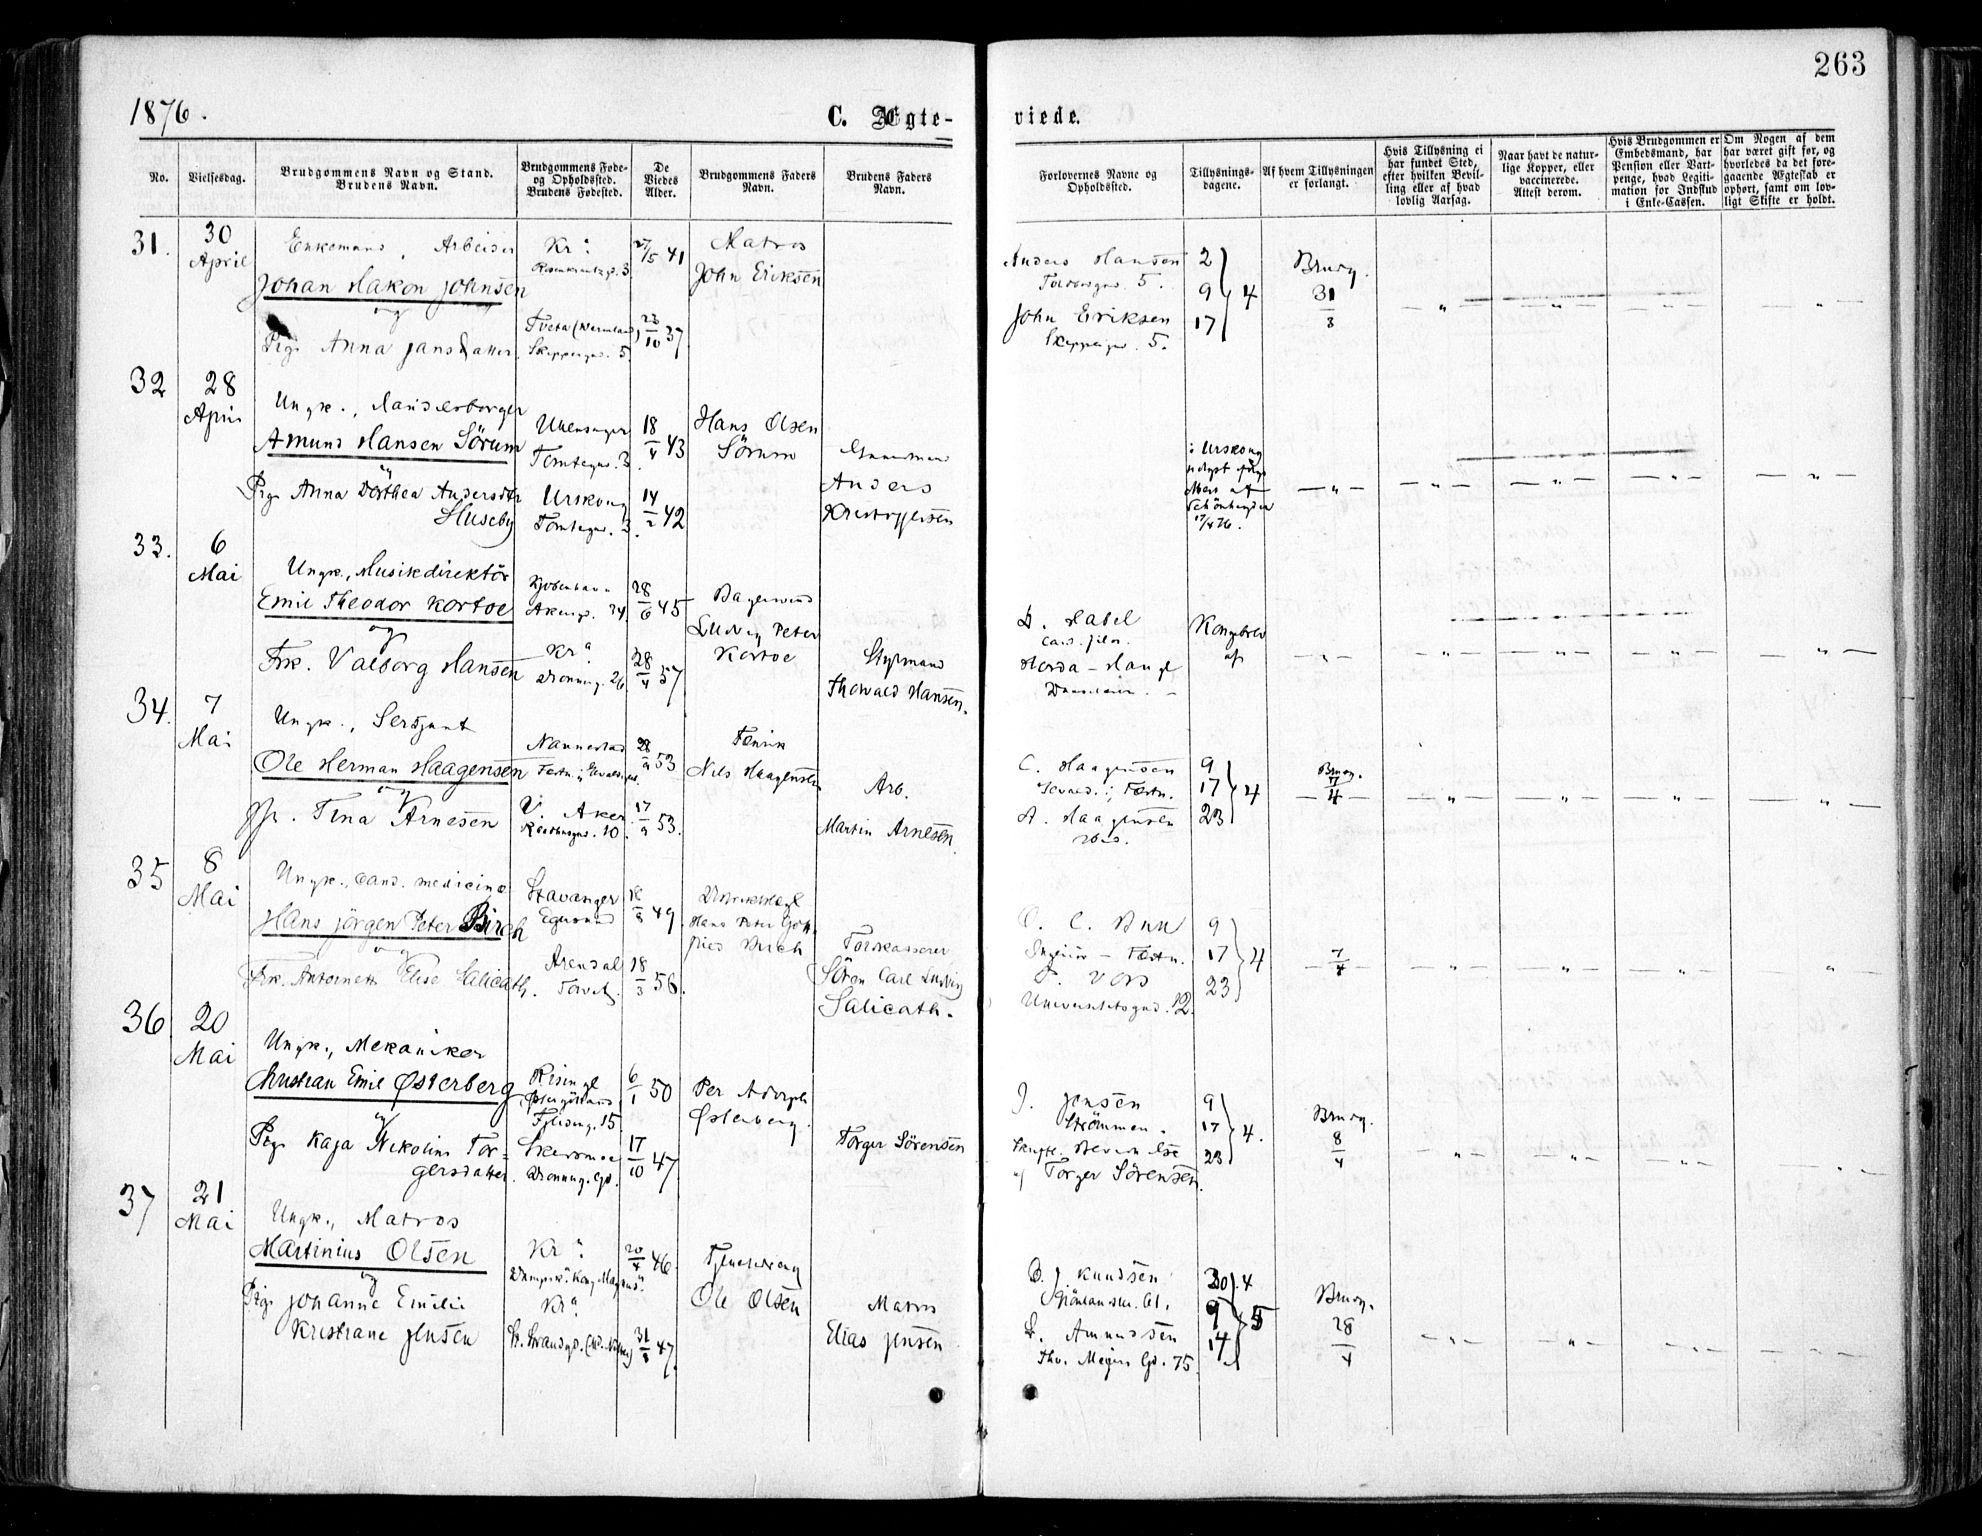 263
1876.
C. Ægte-
viede.
No.
Vielsesdag.
Brudgommens Navn og Stand.
Brudens Navn.
Brudgommens Føde-
og Opholdssted.
Brudens Fødested.
De
Viedes
Alder.
Brudgommens Faders
Navn.
Brudens Faders
Navn.
Forlovernes Navne og
Opholdssted.
Tillysnings-
dagene.
Af hvem Tillysningen
er forlangt.
Hvis Tillysning ei
har fundet Sted,
efter hvilken Bevil-
ling eller af hvad
lovlig Aarsag.
Naar havt de natur-
lige Kopper, eller
vaccinerede.
Attest derom.
Hvis Brudgommen er
Embedsmand, har
Pension eller Vart-
penge, hvad Legiti-
mation for Indskud
i Enke-Cassen.
Om Nogen af dem
har været gift før, og
hvorledes da det fore-
gaaende Ægteskab er
ophørt, samt om lov-
ligt Skifte er holdt.
31.
30
April
Enkemand, Arbeider
Johan Hakon Johnsen
og
Pige Anna Jansdatter
Kra.
3
27/5 41
Tveta (Wermland)
Skippergd. 5
23/10 37
Matros
John Eriksen
Anders Hansen
5.
John Eriksen
Skippergd. 5.
2
9
17
4
Brudg.
31/3
32
28
April
Ungk.,
Amund Hansen Sörum
og
Pige Anna Dorthea Andersdtr
Huseby
Ullensager
Tomtegd. 3.
18/4 43
Urskoug
Tomtegd. 3.
14/2 42
Hans Olsen
Sörum
Anders
Kristoffersen
i Urskoug
17/4 76.
33.
6
Mai
Ungk., Musikdirektör
Emil Theodor Kortoe
og
Frk. Valborg Hansen
Kjøbenhavn
Akersg. 24
28/6 45
Kra.
Dronning. 26
28/4 57
Ludvig Peter
Kortoe
Styrmand
Thowald Hansen.
D. Habel
cand. filos.
Kongebrev
34.
7
Mai
Ungk., Sersjant
Ole Herman Haagensen
og
Pge. Tina Arnesen
Nannestad
28/9 53
V. Aker
10.
17/9 53.
Fænrik
Nils Haagensen
Arb.
Martin Arnesen.
C. Haagensen
A. Haagensen
9
17
23
4
Brudg.
7/4
35
8
Mai
Ungk., cand. medicinæ
Hans Jörgen Peter Birch
og
Frk. Antoinette Elise Salicath.
Stavanger
Egersund
18/8 49.
Arendal
18/3 56.
Hans Peter Gott-
fried Birch
Toldkasserer
Sören Carl Ludvig
Salicath.
O. C. Bull
P. Voss
Universitetsgad. 12.
9
17
23
4
7/4
36
20
Mai
Ungk., Mekaniker
Christian Emil Østerberg
og
Pige Kaja Nikoline Tor=
gersdatter
Östergötland
15
6/1 50
Skedsmoe
Dronning. Gd.
17/10 47.
Per Adolph
Østerberg.
Torger Sörensen
J. Jensen
Strömmen.
af Torger Sörensen.
9
17
23
4.
Brudg.
8/4
37
21
Mai
Ungk., Matros
Martinius Olsen
og
Pige Johanne Emilie
Kristiane Jensen
Kra.
Dampsk. "Kong Magnus"
20/4 46
Kra.
31/8 47.
Ole Olsen
Matros
Elias Jensen
B. J. Knudsen
Grönlandsl. 61.
L. Amundsen
Thv. Meyers Gd. 75
30/4
9
14
5
Brudg.
28/4